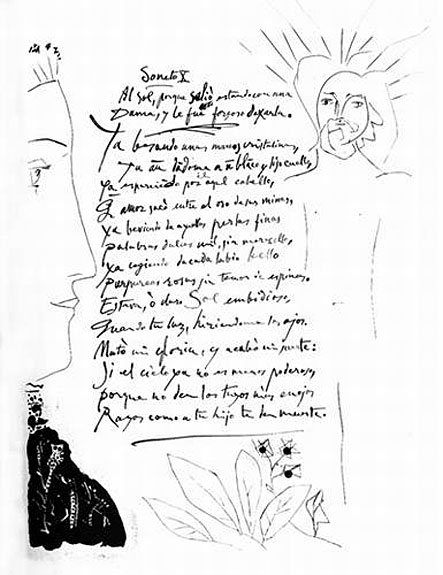 Soneto X
Al Sol, porque salió estando con una
Dama, y le fue forçoso dexarla.
Ya besando unas manos cristalinas,
Ya a un blāco y liso cuello,
Ya esparciendo por él aquel cabello,
Q̄ amor sacó entre el oro de sus minas,
Ya beviendo en aquellas perlas finas
palabras dulces mil, sin merecello,
Ya cogiendo de cada labio bello
purpureas rosas sin temor de espinas.
Estava, ò claro Sol embidioso,
Quando tu luz, hiriendome los ojos.
Matò mi gloria, y acabò mi suerte:
Si el cielo ya no es menos poderoso,
porque no den los tuyos más enojos
Rayos como a tu hijo te den muerte.